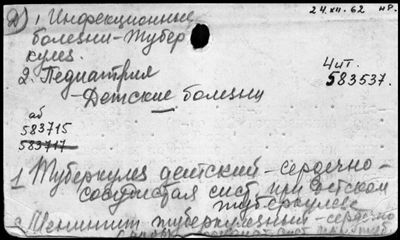 24.XII.62 нр.
1. Инфекционные
болезни - Тубер
кулез.
2. Педиатрия
- Детские болезни
Чит.
583537.
аб
583715
583717
1 Туберкулез детский - сердечно-
сосудистая сист. при детском
туберкулезе
2 Менингит туберкулезный - сердечно